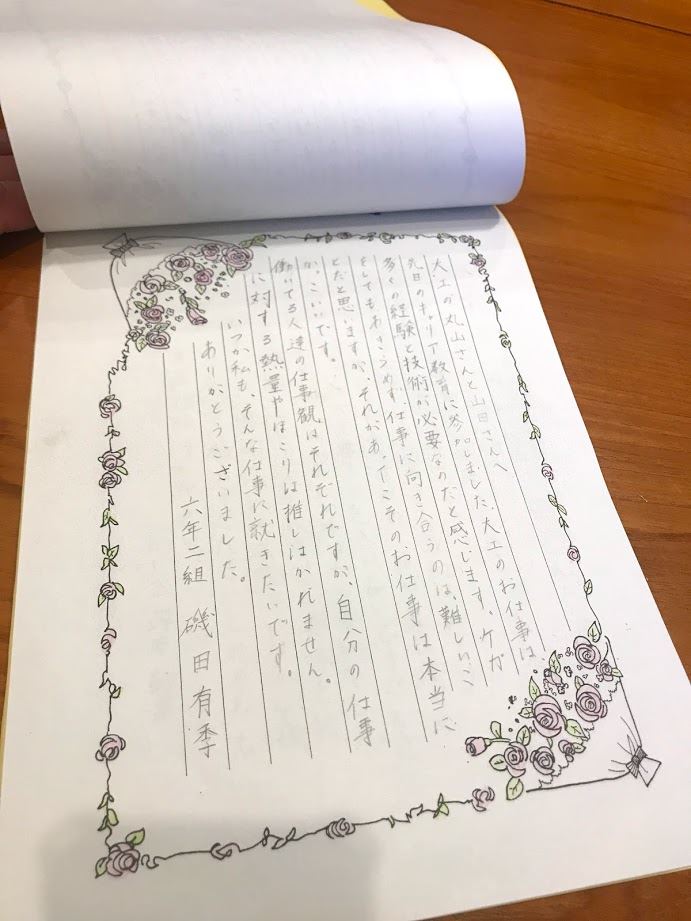 大工の丸山さんと山田さんへ
先日のキャリア教育に参加しました。大工のお仕事は
多くの経験と技術が必要なのだと感じます。ケガ
をしてもあきらめず仕事に向き合うのは、難しいこ
とだと思いますが、それがあってこそのお仕事は本当に
かっこいいです。
働いてる人達の仕事観はそれぞれですが、自分の仕事
に対する熱量やほこりは推しはかれません。
いつか私も、そんな仕事に就きたいです。
ありがとうございました。
六年二組 磯田有季